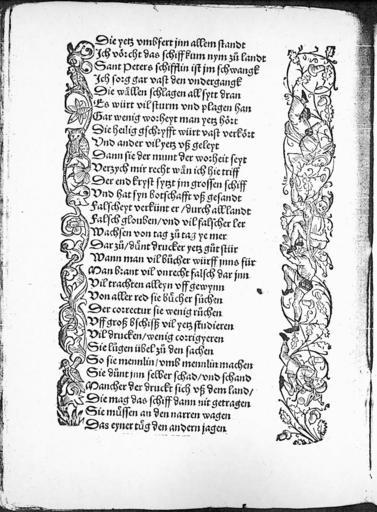 Die yetz vmbfert jnn allem standt
Ich vörcht das schiff kum nym zů landt
Sant Peters schifflin ist jm schwangk
Ich sorg gar vast den vndergangk
Die wällen schlagen all sytt dran
Es würt vil sturm vnd plagen han
Gar wenig worheyt man yetz hört
Die heilig gschryfft würt vast verkört
Vnd ander vil yetz vß geleyt
Dann sie der munt der worheit seyt
Verzych mir recht wän ich hie triff
Der endkryst sytzt jm grossen schiff
Vnd hat syn botschafft vß gesandt
Falscheyt verkünt er / durch all landt
Falsch glouben / vnd vil falscher ler
Wachsen von tag zů tag ye mer
Dar zů / důnt drucker yetz gůt stür
Wann man vil bůcher würff jnns für
Man brant vil vnrecht falsch dar jnn
Vil trachten alleyn vff gewynn
Von aller erd sie bůcher sůchen
Der correctur sie wenig růchen
Vff groß bschisß vil yetz studieren
Vil drucken / wenig corrigyeren
Sie lůgen übel zů den sachen
So sie mennlin / vmb mennlin machen
Sie důnt jnn selber schad / vnd schand
Mancher der druckt sich vß dem land /
Die mag das schiff dann nit getragen
Sie müssen an den narren wagen
Das eyner tůg den andern jagen